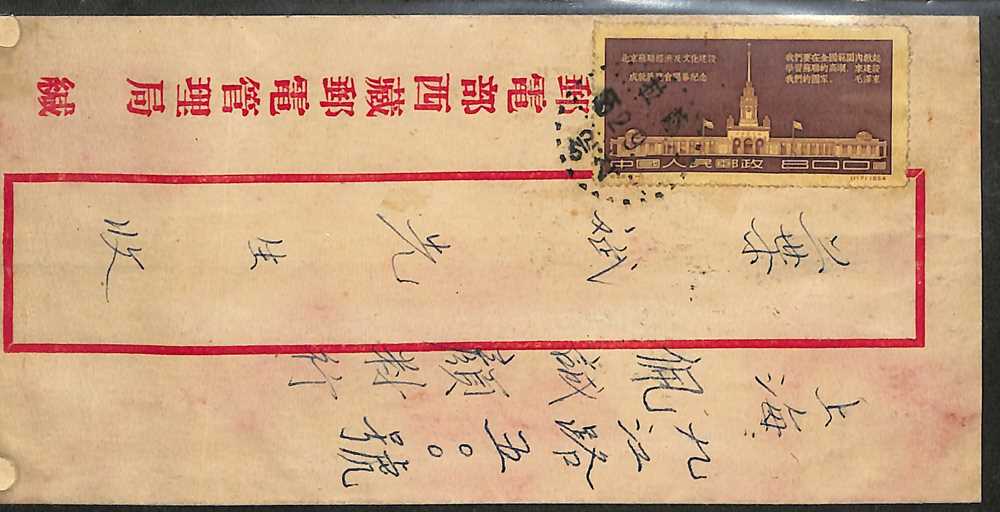 上海
九江路五〇〇號
佩誠顏料行
葉斌先生收
郵電部西藏郵電管理局緘
北京蘇聯經濟及文化建設
成就展覽會開幕紀念
我們要在全國範圍內掀起
學習蘇聯的高潮，來建設
我們的國家。 毛澤東
中國人民郵政 800圓
(117) 1954